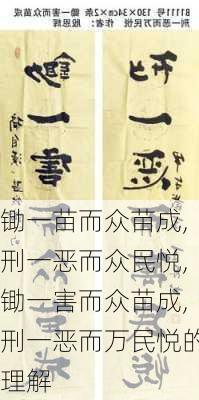 B1111号 130×34cm×2条 锄一害而众苗成
刑一恶而万民悦 作者：殷思辉
刑一恶
锄一害
锄一苗而众苗成,
刑一恶而众民悦,
锄一害而众苗成,
刑一恶而万民悦的
理解